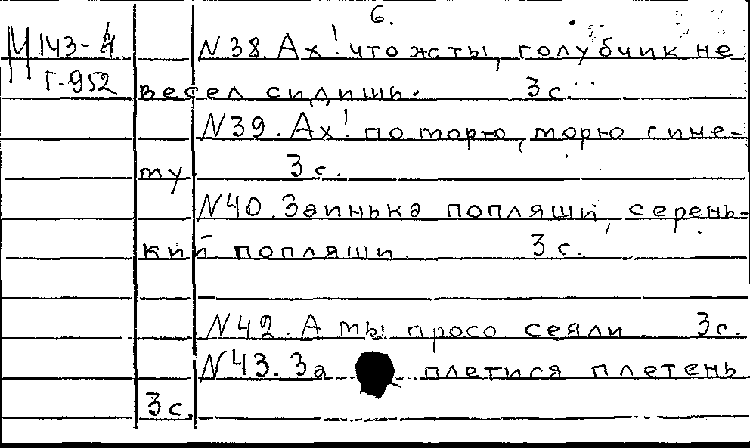 6.
М 143-4 N 38. Ах! что ж ты, голубчик не
Г-952 весел сидишь. 3 с.
N 39. Ах! по морю, морю сине-
му 3 с.
N 40. Заинька попляши, серень-
кий попляши 3 с.
N 42. А мы просо сеяли 3 с.
N 43. За плетися плетень
3 с.